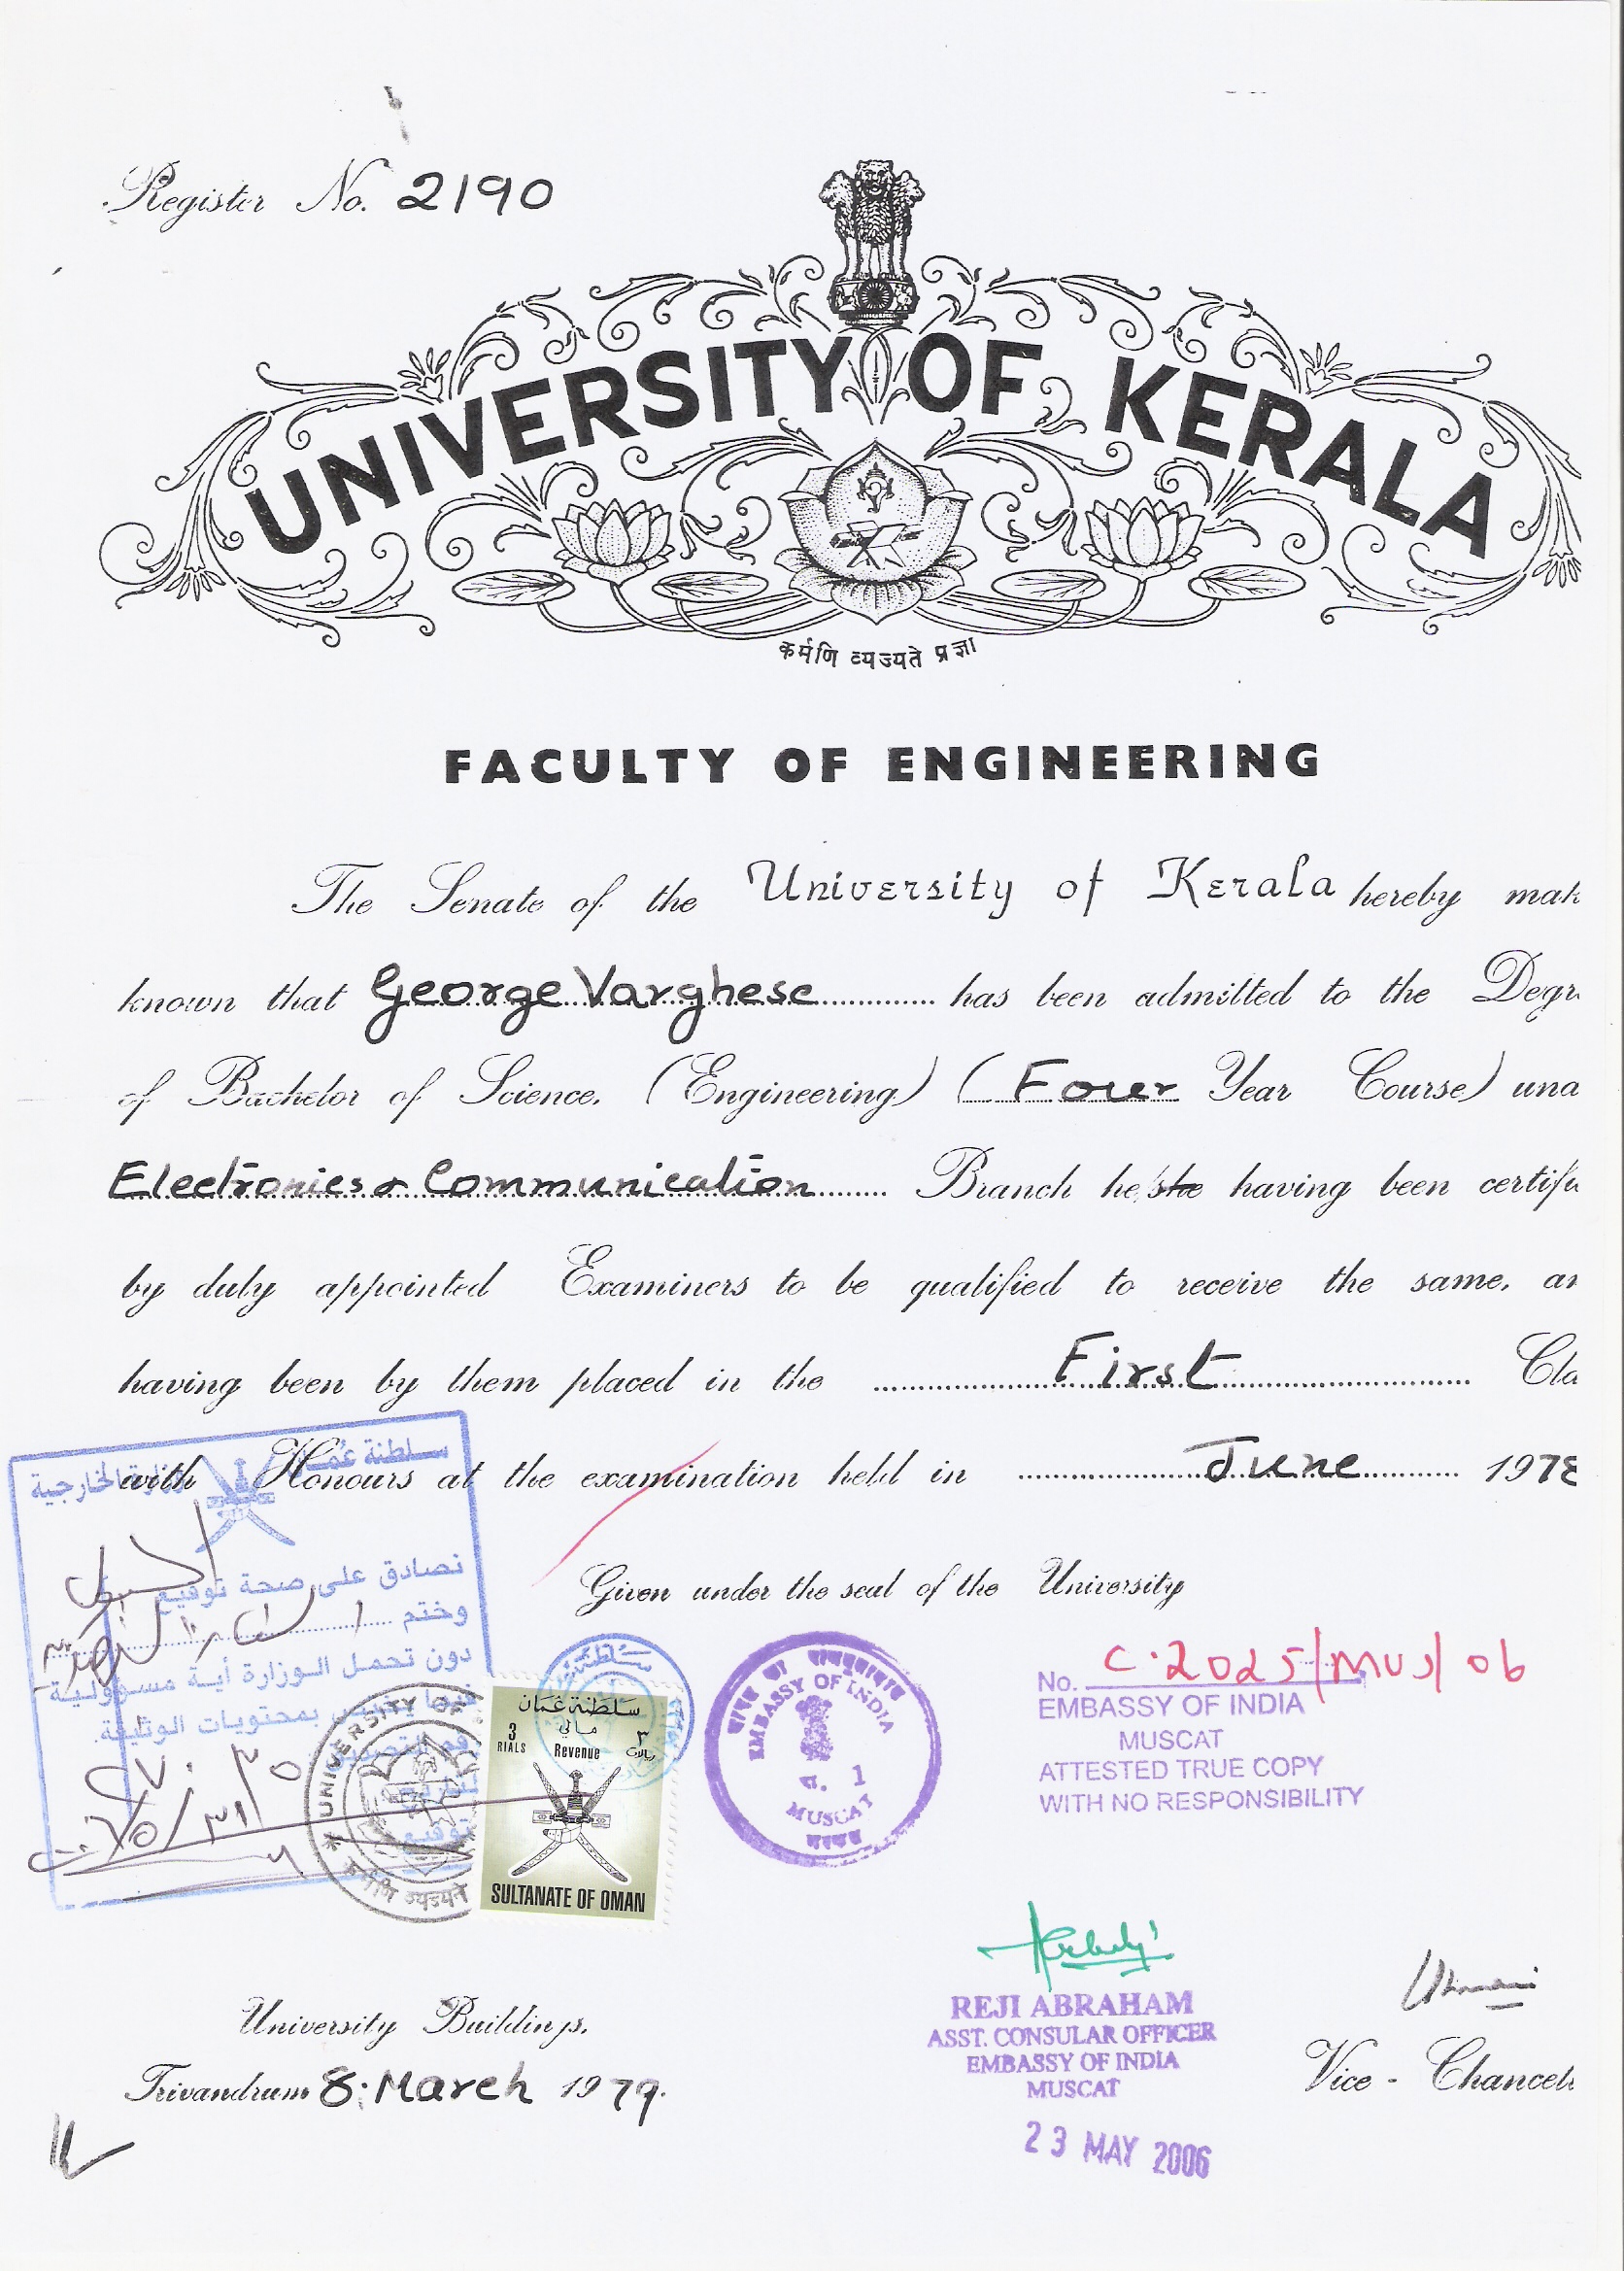 Register No. 2190
UNIVERSITY OF KERALA
कर्मणि व्यज्यते प्रज्ञा
FACULTY OF ENGINEERING
The Senate of the University of Kerala hereby mak
known that George Varghese has been admitted to the Degr
of Bachelor of Science. (Engineering) (Four Year Course) und
Electronics & Communication Branch he/she having been certifi
by duly appointed Examiners to be qualified to receive the same, an
having been by them placed in the First Cla
with Honours at the examination held in June 1978
Given under the seal of the University
سلطنة عمان
وزارة الخارجية
نصادق على صحة توقيع
وختم
دون تحمل الوزارة أية مسؤولية
بمحتويات الوثيقة.
UNIVERSITY OF
कर्मणि व्यज्यते
سلطنة عمان
مالي
3 RIALS Revenue ٣ ريالات
SULTANATE OF OMAN
EMBASSY OF INDIA
1
MUSCAT
No. C.2025/MUS/06
EMBASSY OF INDIA
MUSCAT
ATTESTED TRUE COPY
WITH NO RESPONSIBILITY
REJI ABRAHAM
ASST. CONSULAR OFFICER
EMBASSY OF INDIA
MUSCAT
23 MAY 2006
University Buildings,
Trivandrum 8. March 1979.
Vice - Chancell